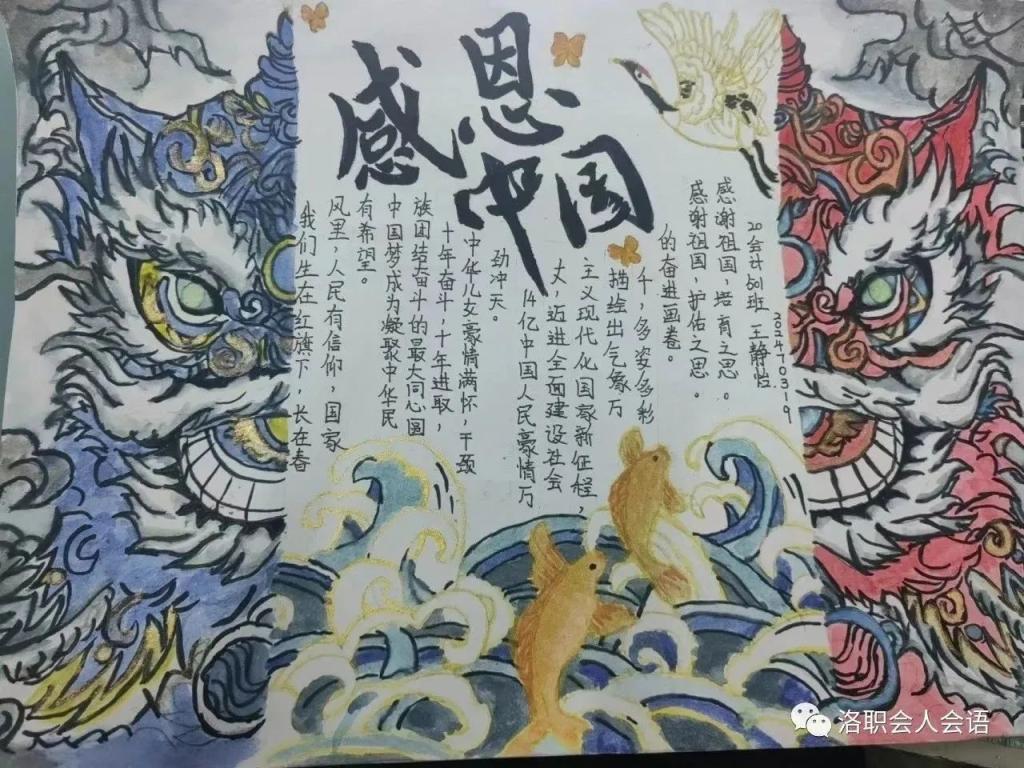 感恩
中国
我们生在红旗下，长在春
风里，人民有信仰，国家
有希望。
中国梦成为凝聚中华民
族团结奋斗的最大同心圆
十年奋斗，十年进取，
中华儿女豪情满怀，干颈
劲冲天。
14亿中国人民豪情万
丈，迈进全面建设社会
主义现代化国家新征程，
描绘出气象万
千，多姿多彩
的奋进画卷。
感谢祖国，护佑之思。
感谢祖国，培育之思。
20会计 班 王静怡
洛职会人会语